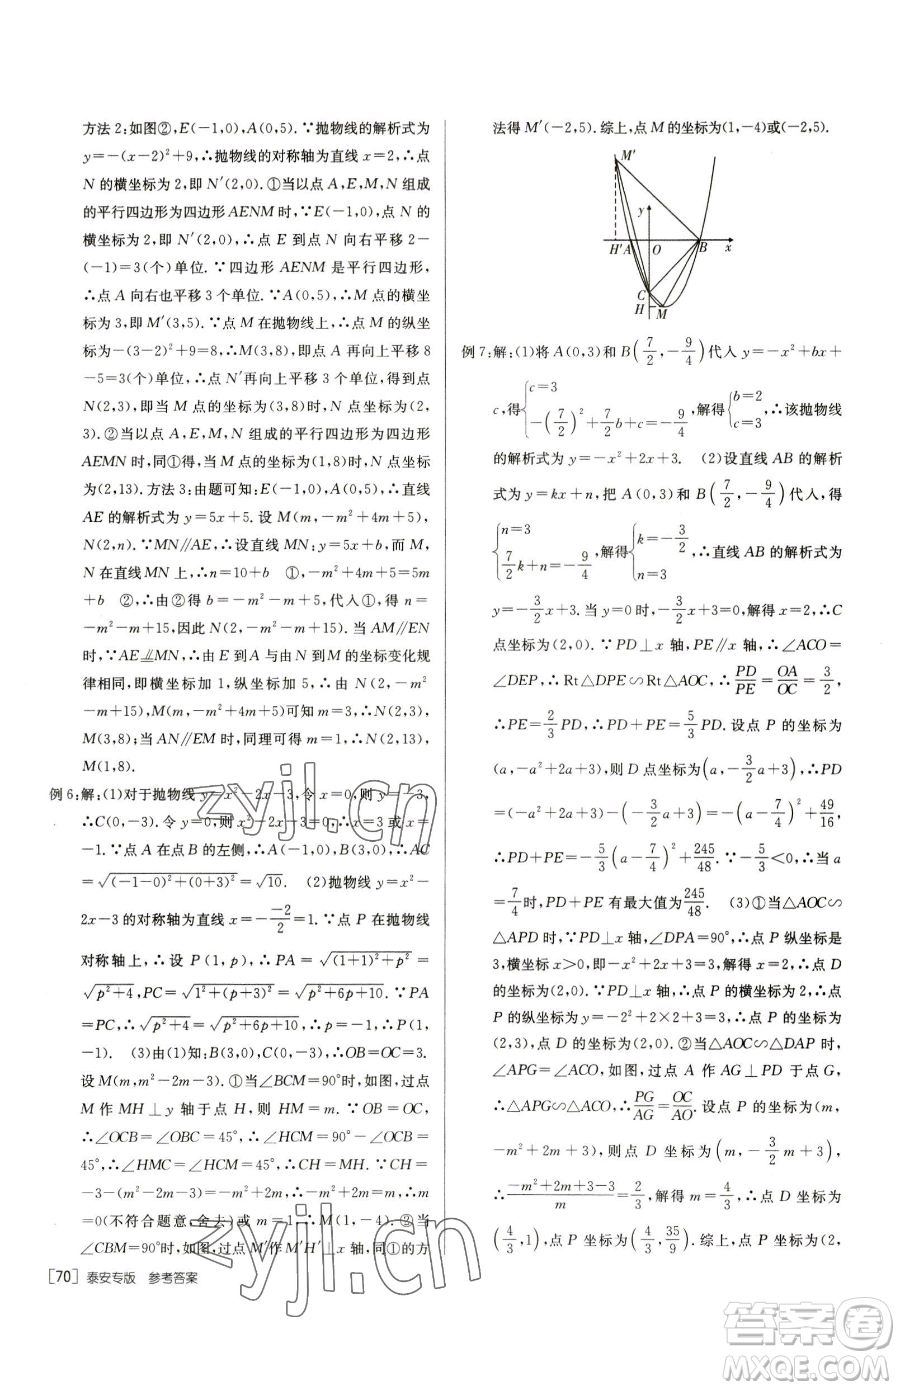 方法2:如图②,E(-1,0),A(0,5).∵抛物线的解析式为
y=-(x-2)²+9,∴抛物线的对称轴为直线x=2,∴点
N的横坐标为2,即N′(2,0).①当以点A,E,M,N组成
的平行四边形为四边形AENM时,∵E(-1,0),点N的
横坐标为2,即N′(2,0),∴点E到点N向右平移2-
(-1)=3(个)单位.∵四边形AENM是平行四边形,
∴点A向右也平移3个单位.∵A(0,5),∴M点的横坐
标为3,即M′(3,5).∵点M在抛物线上,∴点M的纵坐
标为-(3-2)²+9=8,∴M(3,8),即点A再向上平移8
-5=3(个)单位,∴点N′再向上平移3个单位,得到点N
(2,3),即当M点的坐标为(3,8)时,N点的坐标为(2,
3).②当以点A,E,M,N组成的平行四边形为四边形
AEMN时,同①得,当点M的坐标为(1,8)时,N点坐标
(2,13).方法3:由题可知:E(-1,0),A(0,5),∴直线
AE的解析式为y=5x+5.设M(m,-m²+4m+5),
N(2,n).∵MN∥AE,∴设直线MN:y=5x+b,而M,
N在直线MN上,∴n=10+b ①,-m²+4m+5=5m
+b ②,∴由②得b=-m²-m+5,代入①得n=-m²
-m+15,因此N(2,-m²-m+15).当AM∥EN
时,∵AE⫽MN,∴由E到A与由N到M的坐标变化规
律相同,即横坐标加1,纵坐标加5,∴由N(2,-m²
-m+15),M(m,-m²+4m+5)可知m=3,∴N(2,3),
M(3,8);当AN∥EM时,同理可得m=1,∴N(2,13),
M(1,8).
例6:解:(1)对于抛物线y=x²-2x-3,令x=0,则y=-3,
∴C(0,-3).令y=0,则x²-2x-3=0,∴x=3或x=
-1.∵点A在点B的左侧,∴A(-1,0),B(3,0),∴AC
=√(-1-0)²+(0+3)²=√10. (2)抛物线y=x²-
2x-3的对称轴为直线x=-\frac{-2}{2}=1.∵点P在抛物线
对称轴上,∴设P(1,p),∴PA=√(1+1)²+p²=
√p²+4,PC=√1²+(p+3)²=√p²+6p+10.∵PA
=PC,∴√p²+4=√p²+6p+10,∴p=-1,∴P(1,
-1). (3)由(1)知:B(3,0),C(0,-3),∴OB=OC=3.
设M(m,m²-2m-3).①当∠BCM=90°时,如图,过点
M作MH⊥y轴于点H,则HM=m.∵OB=OC,
∴∠OCB=∠OBC=45°,∴∠HCM=90°-∠OCB=
45°,∴∠HMC=∠HCM=45°,∴CH=MH.∵CH=
-3-(m²-2m-3)=-m²+2m,∴-m²+2m=m,∴m
=0(不符合题意,舍去)或m=1,∴M(1,-4).②当
∠CBM=90°时,如图,过点M′作M′H′⊥x轴,同①的方
[70] 泰安专版 参考答案
法得M′(-2,5).综上,点M的坐标为(1,-4)或(-2,5).
M′
y
H′ A O B x
C
H M
例7:解:(1)将A(0,3)和B(\frac{7}{2},-\frac{9}{4})代入y=-x²+bx+
c,得{c=3 -(\frac{7}{2})²+\frac{7}{2}b+c=-\frac{9}{4},解得{b=2 c=3,∴该抛物线
的解析式为y=-x²+2x+3. (2)设直线AB的解析
式为y=kx+n,把A(0,3)和B(\frac{7}{2},-\frac{9}{4})代入,得
{n=3 \frac{7}{2}k+n=-\frac{9}{4},解得{k=-\frac{3}{2} n=3,∴直线AB的解析式为
y=-\frac{3}{2}x+3.当y=0时,-\frac{3}{2}x+3=0,解得x=2,∴C
点坐标为(2,0).∵PD⊥x轴,PE∥x轴,∴∠ACO=
∠DEP,∴Rt△DPE∽Rt△AOC,∴\frac{PD}{PE}=\frac{OA}{OC}=\frac{3}{2},
∴PE=\frac{2}{3}PD,∴PD+PE=\frac{5}{3}PD.设点P的坐标为
(a,-a²+2a+3),则D点坐标为(a,-\frac{3}{2}a+3),∴PD
=(-a²+2a+3)-(-\frac{3}{2}a+3)=-(a-\frac{7}{4})²+\frac{49}{16},
∴PD+PE=-\frac{5}{3}(a-\frac{7}{4})²+\frac{245}{48}.∵-\frac{5}{3}<0,∴当a
=\frac{7}{4}时,PD+PE有最大值为\frac{245}{48}. (3)①当△AOC∽
△APD时,∵PD⊥x轴,∠DPA=90°,∴点P纵坐标是
3,横坐标x>0,即-x²+2x+3=3,解得x=2,∴点D
的坐标为(2,0).∵PD⊥x轴,∴点P的横坐标为2,∴点
P的纵坐标为y=-2²+2×2+3=3,∴点P的坐标为
(2,3),点D的坐标为(2,0).②当△AOC∽△DAP时,
∠APG=∠ACO,如图,过点A作AG⊥PD于点G,
∴△APG∽△ACO,∴\frac{PG}{AG}=\frac{OC}{AO}.设点P的坐标为(m,
-m²+2m+3),则点D的坐标为(m,-\frac{3}{2}m+3),
∴\frac{-m²+2m+3-3}{m}=\frac{2}{3},解得m=\frac{4}{3},∴D点坐标为
(\frac{4}{3},1),P点坐标为(\frac{4}{3},\frac{35}{9}).综上,点P的坐标为(2,
zyjl.cn
zyjl.cn
答案圈
MXQE.COM